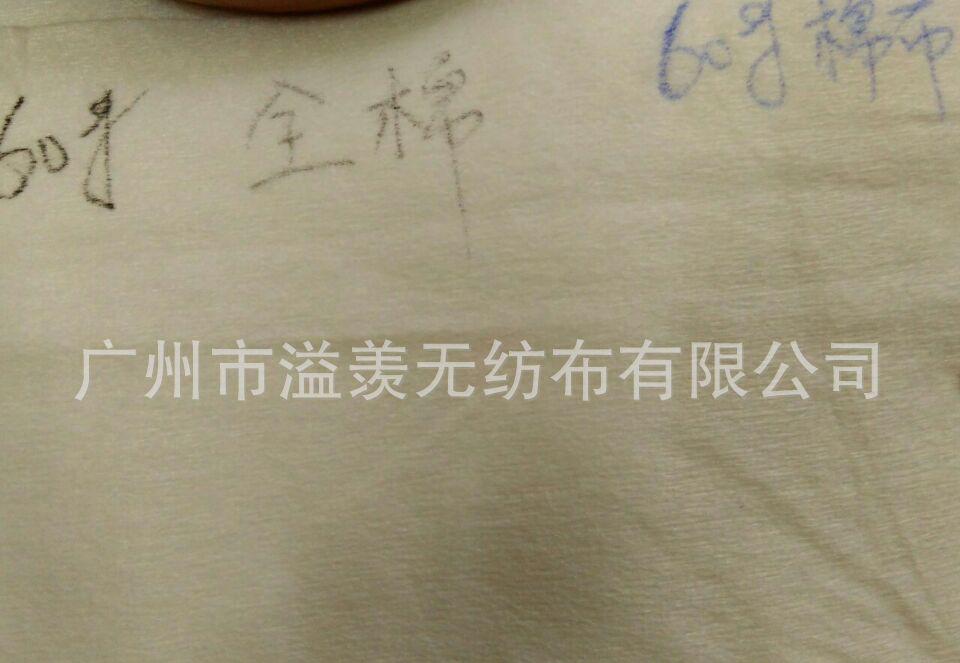 60g 棉布
60g 全棉
广州市溢羡无纺布有限公司